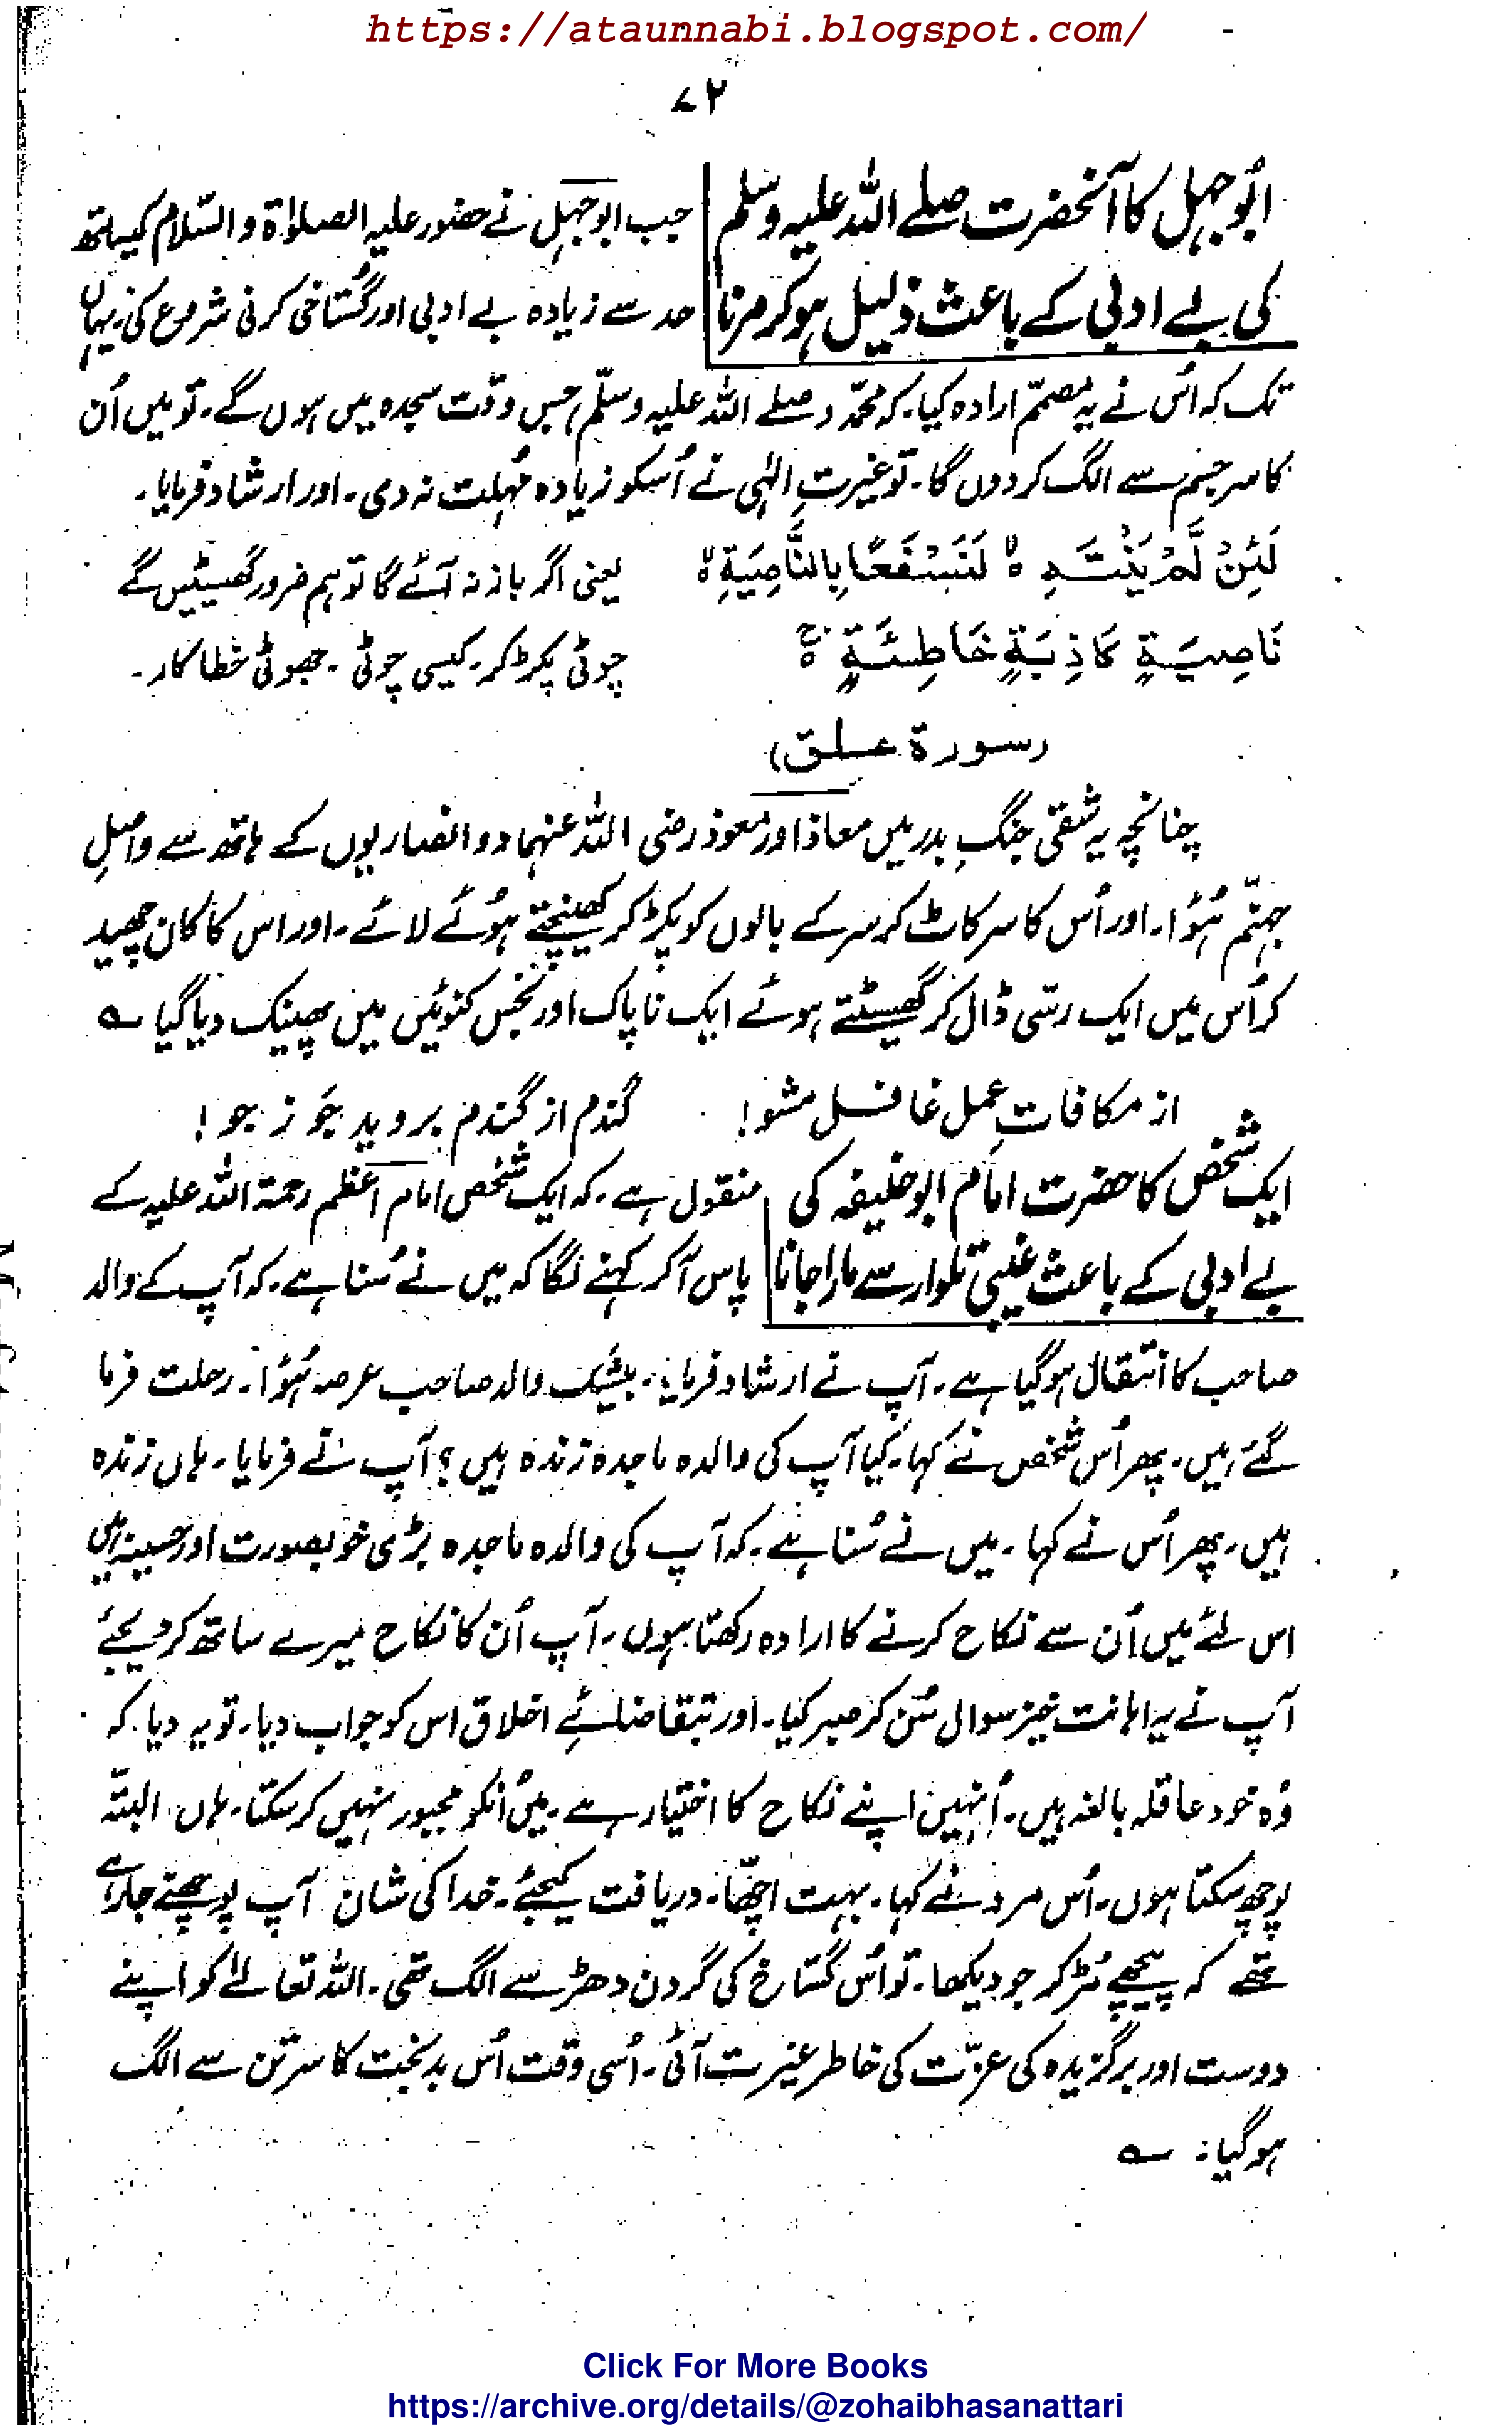 https://ataunnabi.blogspot.com/
۷۲
ابُوجہل کا آنحضرت صلے اللہ علیہ وسلم
کی بے ادبی کے باعث ذلیل ہوکر مرنا
جب ابوجہل نے حضور علیہ الصلوٰۃ والسّلام کیساتھ
حد سے زیادہ بے ادبی اور گُستاخی کرنی شروع کی۔ یہاں
تک کہ اُس نے یہ مصمّم ارادہ کیا۔ کہ محمّد (صلے اللہ علیہ وسلّم) جس وقت سجدہ میں ہوں گے۔ تو میں اُن
کا سر جسم سے الگ کردوں گا۔ تو غیرتِ الٰہی نے اُسکو زیادہ مُہلت نہ دی۔ اور ارشاد فرمایا۔
لَئِنْ لَّمْ يَنْتَهِ ۙ لَنَسْفَعًا بِالنَّاصِيَةِ ۙ
یعنی اگر باز نہ آئے گا تو ہم ضرور گھسیٹیں گے
نَاصِيَةٍ كَاذِبَةٍ خَاطِئَةٍ ۚ
چوٹی پکڑ کر۔ کیسی چوٹی۔ جھوٹی خطا کار۔
(سورۃ علق)
چنانچہ یہ شقی جنگِ بدر میں معاذ اور معوذ رضی اللہ عنہما دو انصاریوں کے ہاتھ سے واصلِ
جہنّم ہُؤا۔ اور اُس کا سر کاٹ کر سر کے بالوں کو پکڑ کر کھینچتے ہُوئے لائے۔ اور اس کا کان چھید
کر اُس میں ایک رسّی ڈال کر گھسیٹتے ہوئے ایک ناپاک اور نجس کنوئیں میں پھینک دیا گیا ؎
از مکافاتِ عمل غافل مشو! گندم از گندم بروید جَو ز جو!
ایک شخص کا حضرت امام ابوحنیفہ کی
بے ادبی کے باعث غیبی تلوار سے مارا جانا
منقول ہے۔ کہ ایک شخص امام اعظم رحمۃ اللہ علیہ کے
پاس آکر کہنے لگا کہ میں نے سُنا ہے۔ کہ آپ کے والد
صاحب کا انتقال ہوگیا ہے۔ آپ نے ارشاد فرمایا۔ بیشک والد صاحب عرصہ ہُؤا۔ رحلت فرما
گئے ہیں۔ پھر اُس شخص نے کہا۔ کیا آپ کی والدہ ماجدہ زندہ ہیں؟ آپ نے فرمایا۔ ہاں زندہ
ہیں۔ پھر اُس نے کہا۔ میں نے سُنا ہے۔ کہ آپ کی والدہ ماجدہ بڑی خوبصورت اور حسینہ ہیں
اس لئے میں اُن سے نکاح کرنے کا ارادہ رکھتا ہوں۔ آپ اُن کا نکاح میرے ساتھ کردیجئے
آپ نے یہ اہانت خیز سوال سُن کر صبر کیا۔ اور بتقاضائے اخلاق اس کو جواب دیا۔ تو یہ دیا۔ کہ
وُہ خود عاقلہ بالغہ ہیں۔ اُنہیں اپنے نکاح کا اختیار ہے۔ میں اُنکو مجبور نہیں کرسکتا۔ ہاں البتّہ
پوچھ سکتا ہوں۔ اُس مرد نے کہا۔ بہت اچھّا۔ دریافت کیجئے۔ خدا کی شان آپ پوچھنے جارہے
تھے کہ پیچھے مُڑ کر جو دیکھا۔ تو اُس گستاخ کی گردن دھڑ سے الگ تھی۔ اللہ تعالےٰ کو اپنے
دوست اور برگزیدہ کی عزّت کی خاطر غیرت آئی۔ اُسی وقت اُس بدبخت کا سر تن سے الگ
ہوگیا: ؎
Click For More Books
https://archive.org/details/@zohaibhasanattari